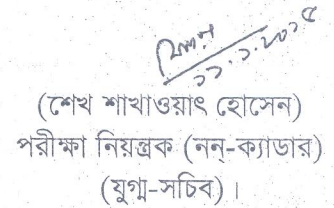 ১১.১.২০১৫
(শেখ শাখাওয়াৎ হোসেন)
পরীক্ষা নিয়ন্ত্রক (নন্-ক্যাডার)
(যুগ্ম-সচিব)।